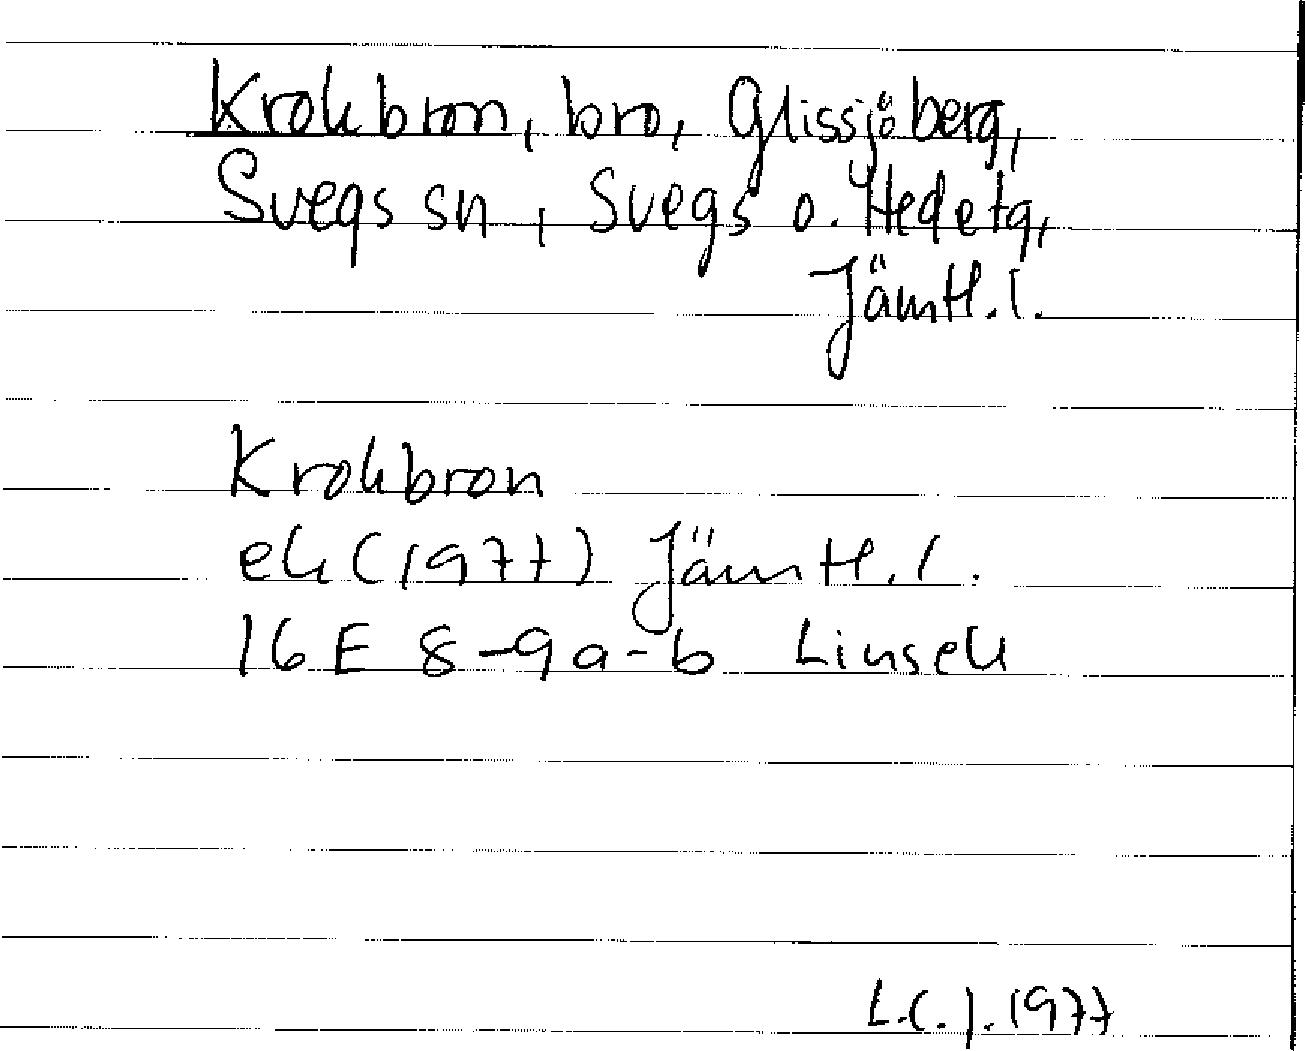 Krokbron, bro, Glissjöberg,
Svegs sn, Svegs o. Hede tg,
Jämtl. l.
Krokbron
ek (1977) Jämtl. l.
16 E 8-9 a-b Linsell
L.C.J. 1977